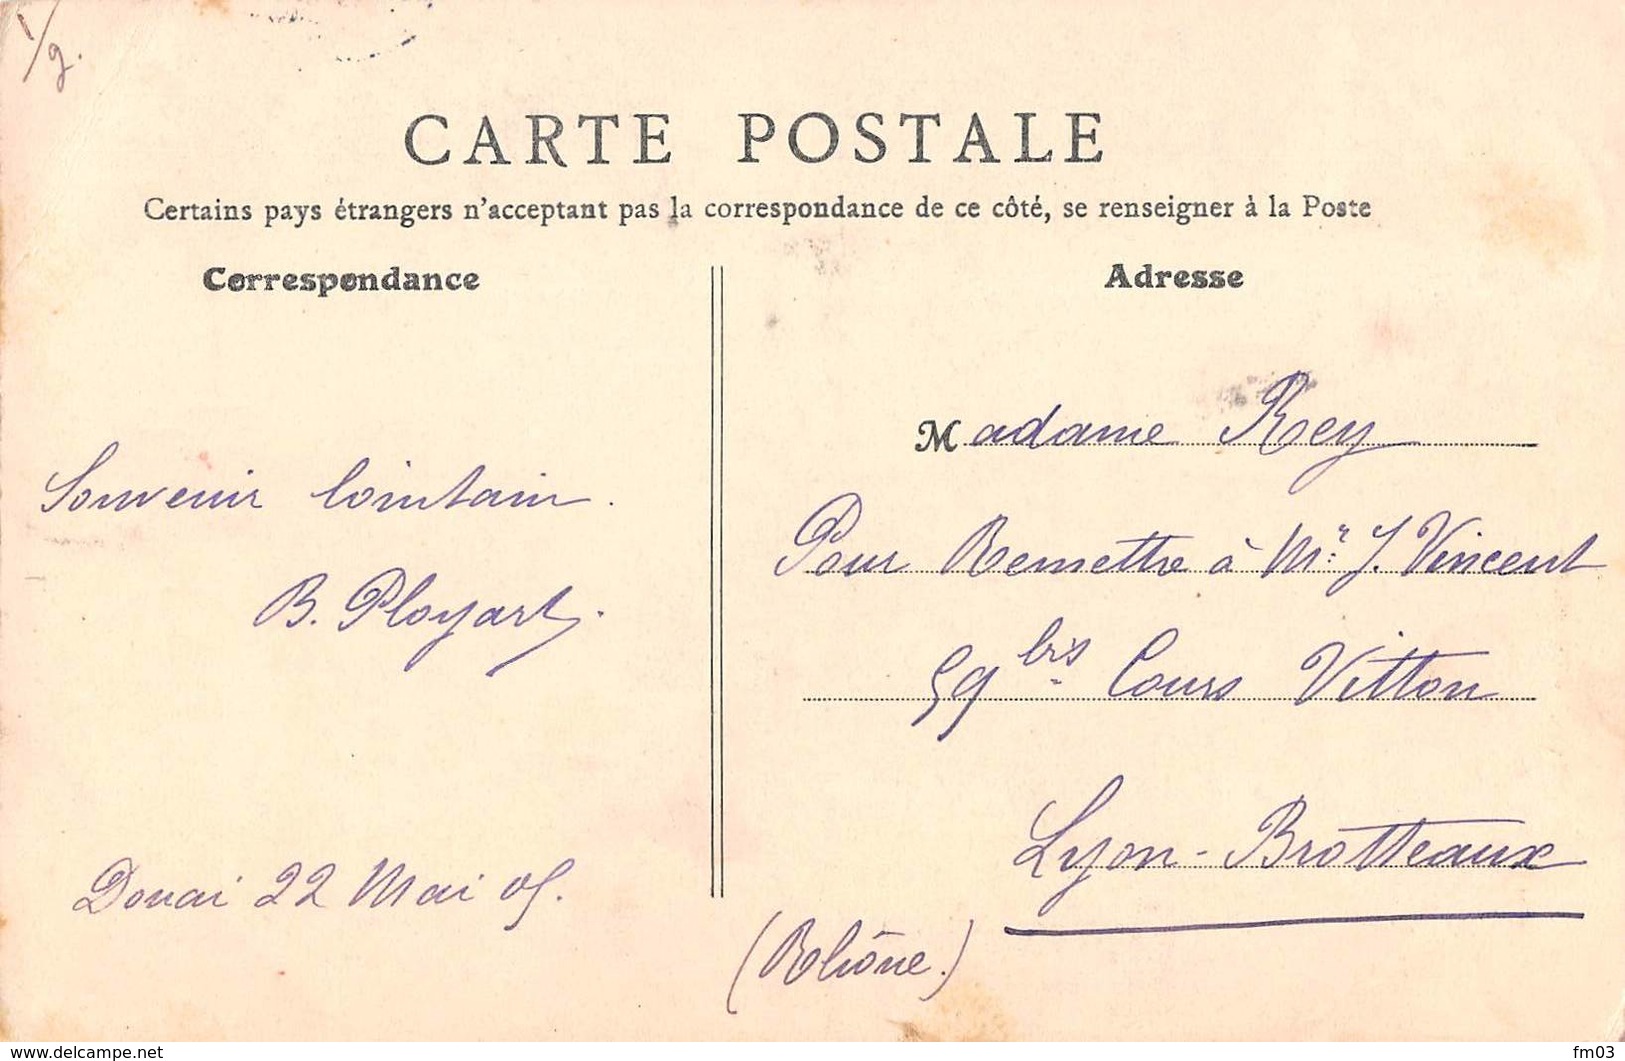 1/9.
CARTE POSTALE
Certains pays étrangers n'acceptant pas la correspondance de ce côté, se renseigner à la Poste
Correspondance
Souvenir lointain.
B. Ployart.
Douai 22 Mai 05.
Adresse
Madame Rey
Pour Remettre à Mr. J. Vincent
59 bis Cours Vitton
Lyon-Brotteaux
(Rhône.)
www.delcampe.net
fm03